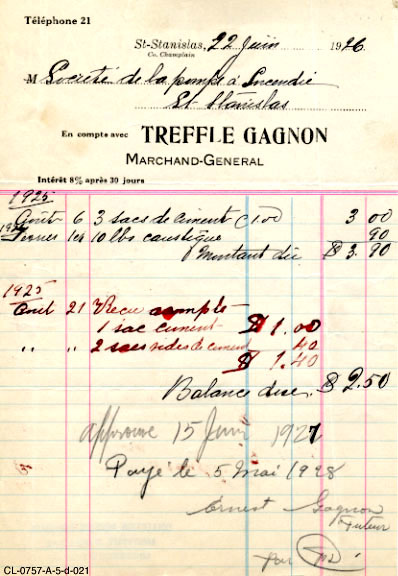 Téléphone 21
St-Stanislas, 22 juin 1926
Co. Champlain
M Societé de la pompe à Incendie
St-Stanislas
En compte avec TREFFLE GAGNON
MARCHAND-GENERAL
Intérêt 8% après 30 jours
1925
Août 6 3 sacs de ciment 1.00 3 00
1926
10 lbs caustique 90
Montant du $ 3.90
1925
Aout 21 Recu acompte
1 sac ciment $ 1.00
" " 2 sacs vides de ciment 40
$ 1.40
Balance due $ 2.50
approuvé 15 Juin 1927
Payé le 5 Mai 1928
Ernest Gagnon
Tuteur
par
CL-0757-A-5-d-021